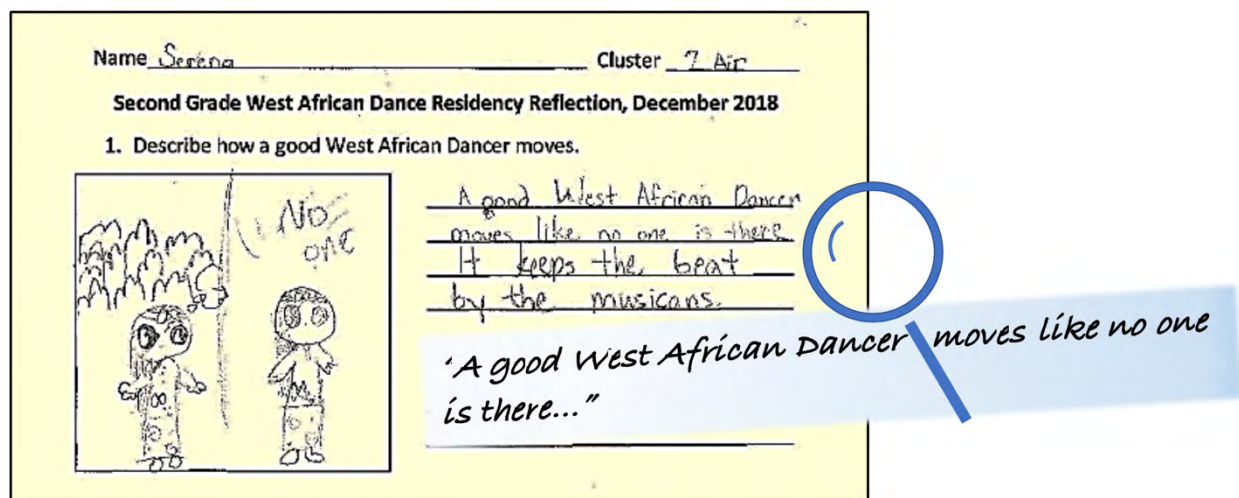 Name Serena Cluster 7 Air
Second Grade West African Dance Residency Reflection, December 2018
1. Describe how a good West African Dancer moves.
No
one
A good West African Dancer
moves like no one is there
It keeps the beat
by the musicans.
"A good West African Dancer moves like no one
is there..."